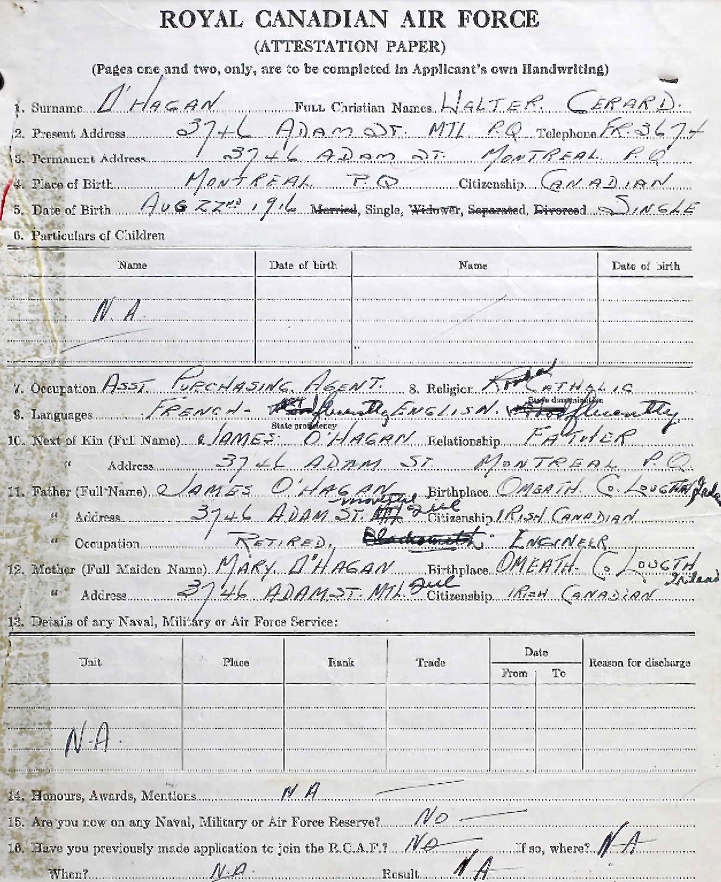 ROYAL CANADIAN AIR FORCE
(ATTESTATION PAPER)
(Pages one and two, only, are to be completed in Applicant's own Handwriting)
1. Surname O'HAGAN FULL Christian Names WALTER GERARD.
2. Present Address 3746 ADAM ST. MTL P.Q Telephone FR.3674
3. Permanent Address 3746 ADAM ST. MONTREAL P.Q
4. Place of Birth MONTREAL P.Q Citizenship CANADIAN
5. Date of Birth AUG 22ND 1916 Married, Single, Widower, Separated, Divorced SINGLE
6. Particulars of Children
Name Date of birth Name Date of birth
N.A
7. Occupation ASST PURCHASING AGENT. 8. Religion CATHOLIC
State denomination
9. Languages FRENCH - fluently ENGLISH. fluently
State proficiency
10. Next of Kin (Full Name) JAMES O'HAGAN Relationship FATHER
" Address 3746 ADAM ST MONTREAL P.Q
11. Father (Full Name) JAMES O'HAGAN Birthplace OMEATH Co. LOUGTH
" Address 3746 ADAM ST. montreal Citizenship IRISH CANADIAN
" Occupation RETIRED, Blacksmith. ENGINEER
12. Mother (Full Maiden Name) MARY O'HAGAN Birthplace OMEATH - Co LOUGTH Ireland
" Address 3746 ADAM ST. MTL Citizenship IRISH CANADIAN
13. Details of any Naval, Military or Air Force Service:
Unit Place Rank Trade Date Reason for discharge
From To
N.A.
14. Honours, Awards, Mentions N A
15. Are you now on any Naval, Military or Air Force Reserve? NO
16. Have you previously made application to join the R.C.A.F.? NO If so, where? N A
When? N.A. Result N A